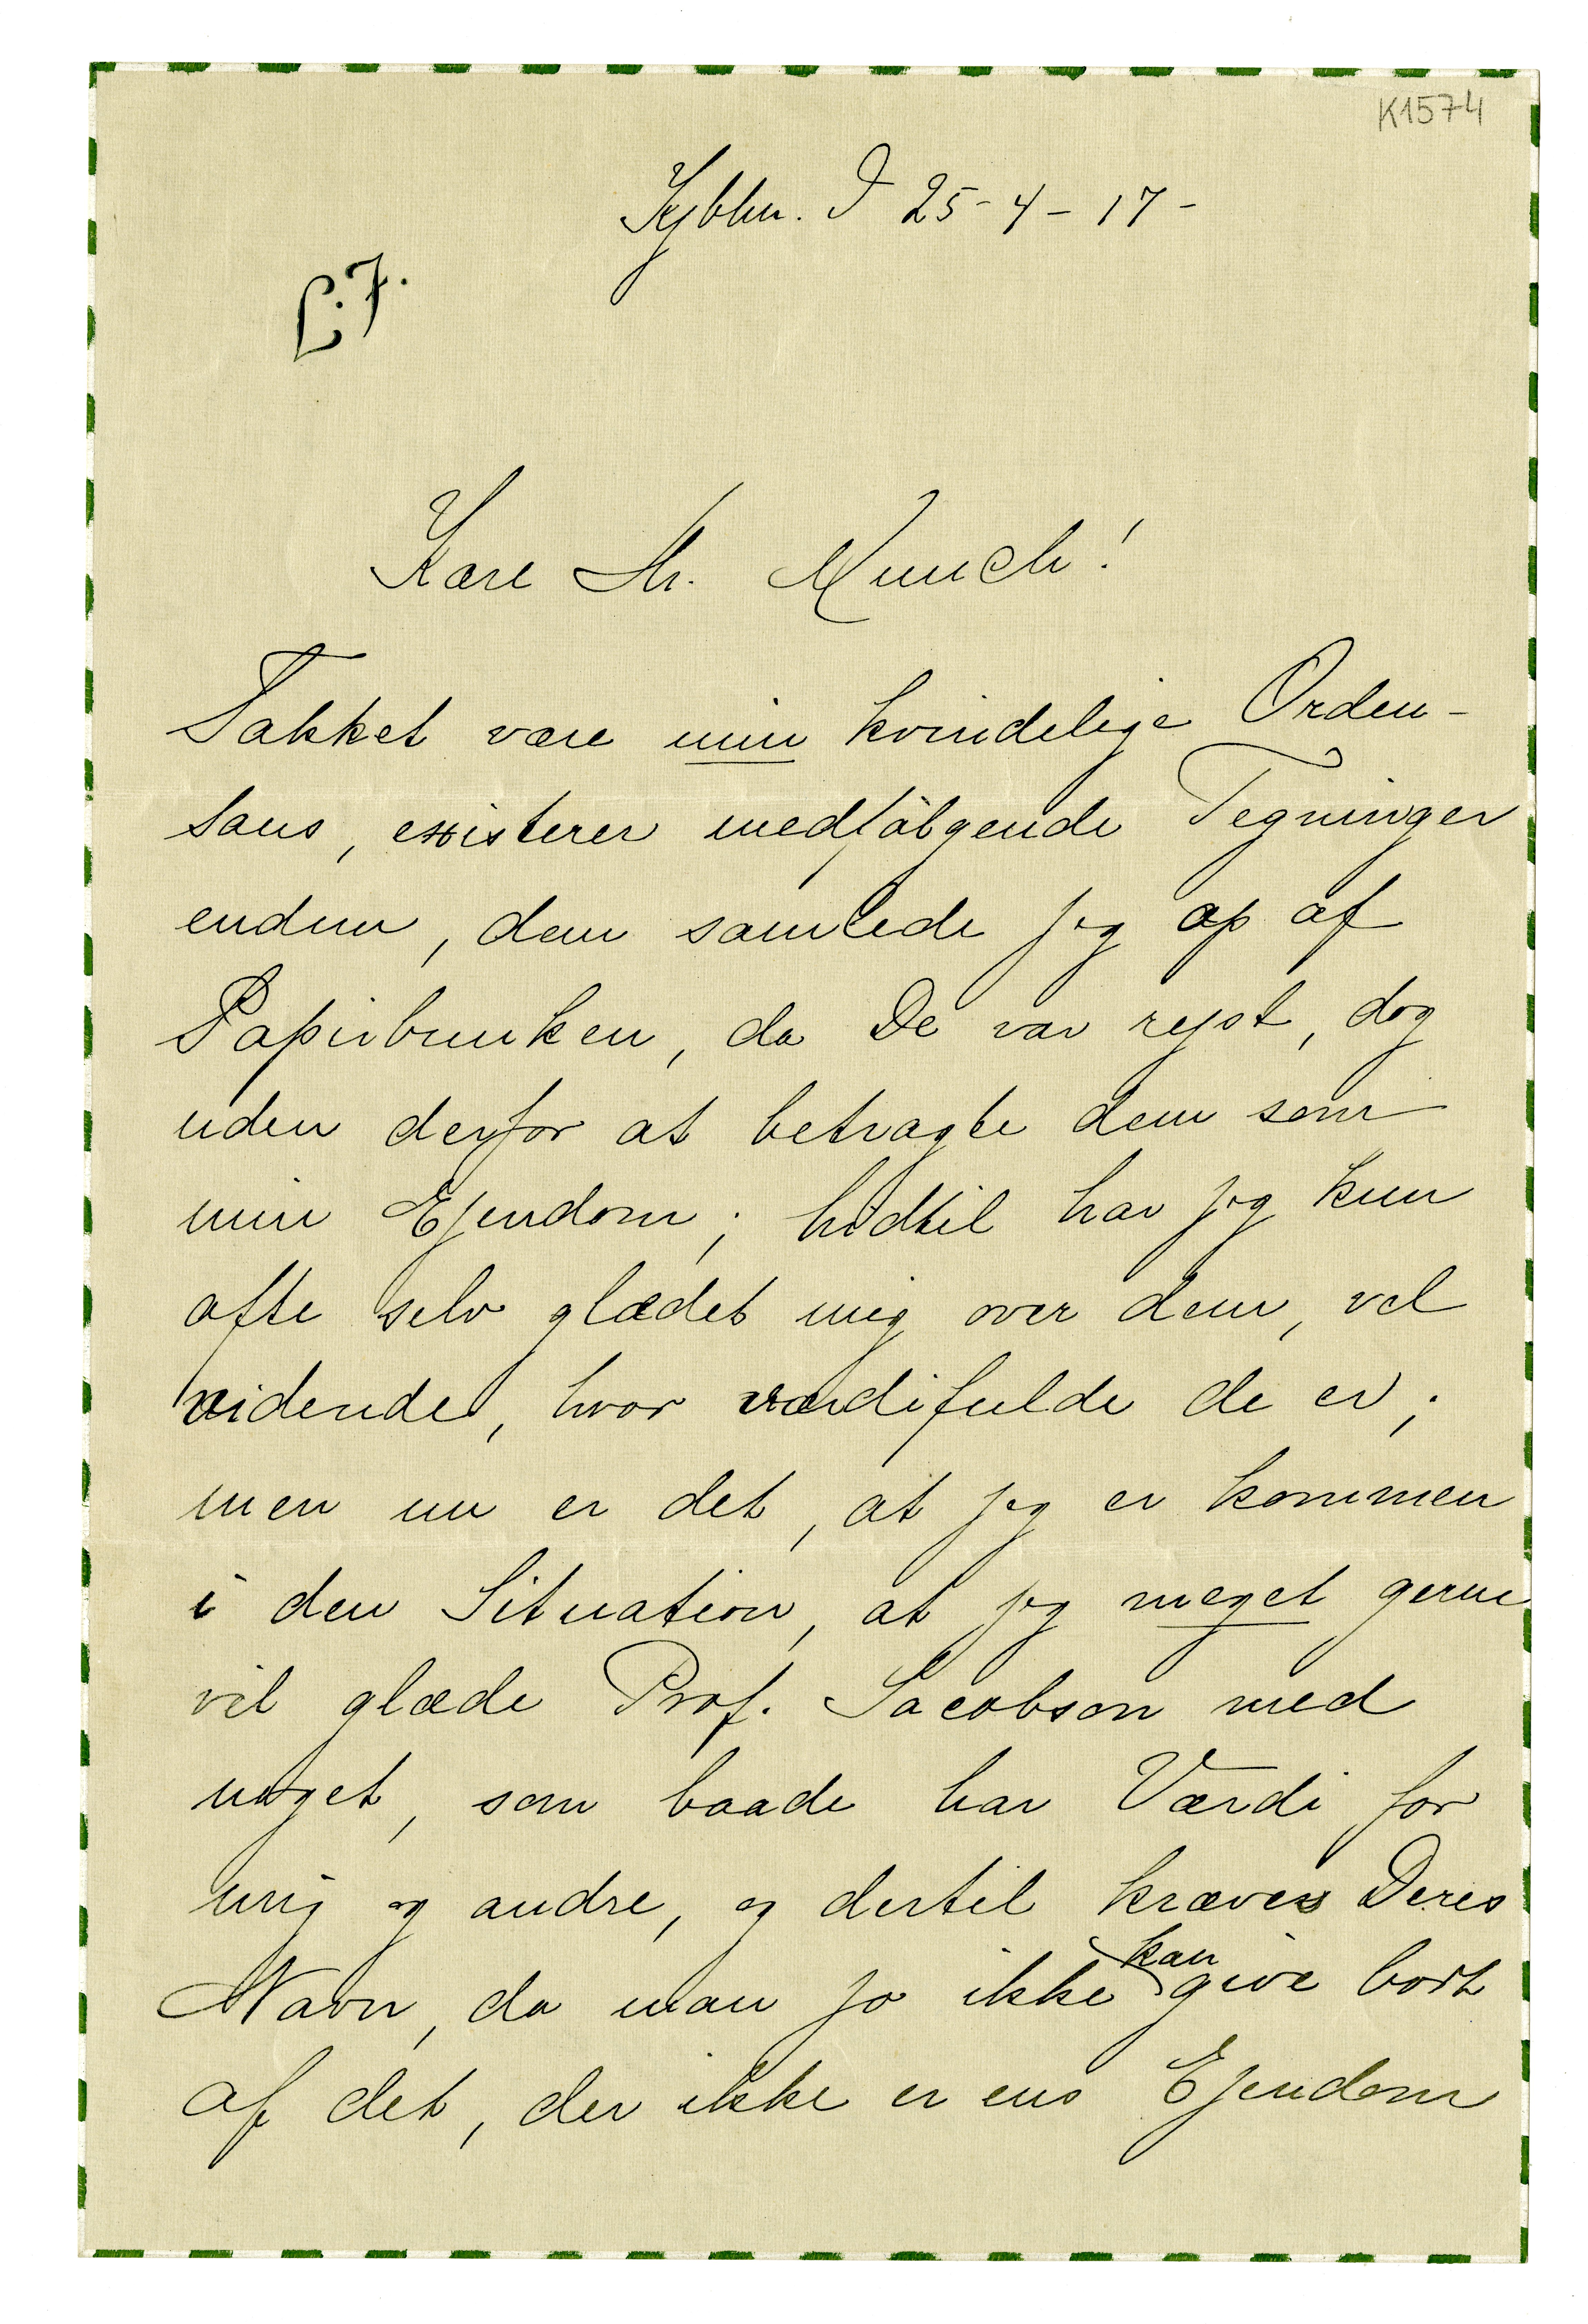 K1574
Kjbhn. D 25-4-17-
L.F.
Kære Hr. Munch!
Takket være min kvindelige Orden-
sans, existerer medfölgende Tegninger
endnu, dem samlede jeg op af
Papirbunken, da De var rejst, dog
uden derfor at betragte dem som
min Ejendom; hidtil har jeg kun
ofte selv glædet mig over dem, vel
vidende, hvor værdifulde de er;
men nu er det, at jeg er kommen
i den Situation, at jeg meget gerne
vil glæde Prof. Jacobson med
noget, som baade har Værdi for
mig og andre, og dertil kræves Deres
Navn, da man jo ikke kan give bort
af det, der ikke er ens Ejendom